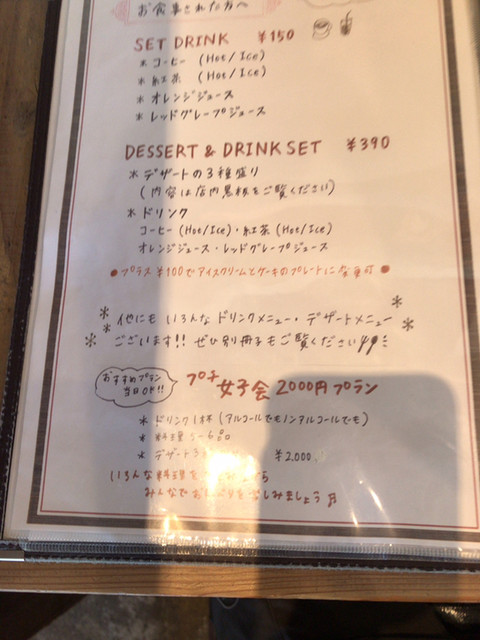 お食事された方へ
SET DRINK ¥150
* コーヒー (Hot/Ice)
* 紅茶 (Hot/Ice)
* オレンジジュース
* レッドグレープジュース
DESSERT & DRINK SET ¥390
* デザートの3種盛り
(内容は店内黒板をご覧ください)
* ドリンク
コーヒー (Hot/Ice)・紅茶 (Hot/Ice)
オレンジジュース・レッドグレープジュース
● プラス ¥100でアイスクリームとケーキのプレートに変更可 ●
* 他にも いろんな ドリンクメニュー・デザートメニュー *
* ございます!! ぜひ別冊子もご覧ください *
おすすめプラン
当日OK!!
プチ女子会 2000円プラン
* ドリンク1杯 (アルコールでもノンアルコールでも)
* 料理 5~6品
* デザート3 ¥2,000
いろんな料理を
みんなで を楽しみましょう♫